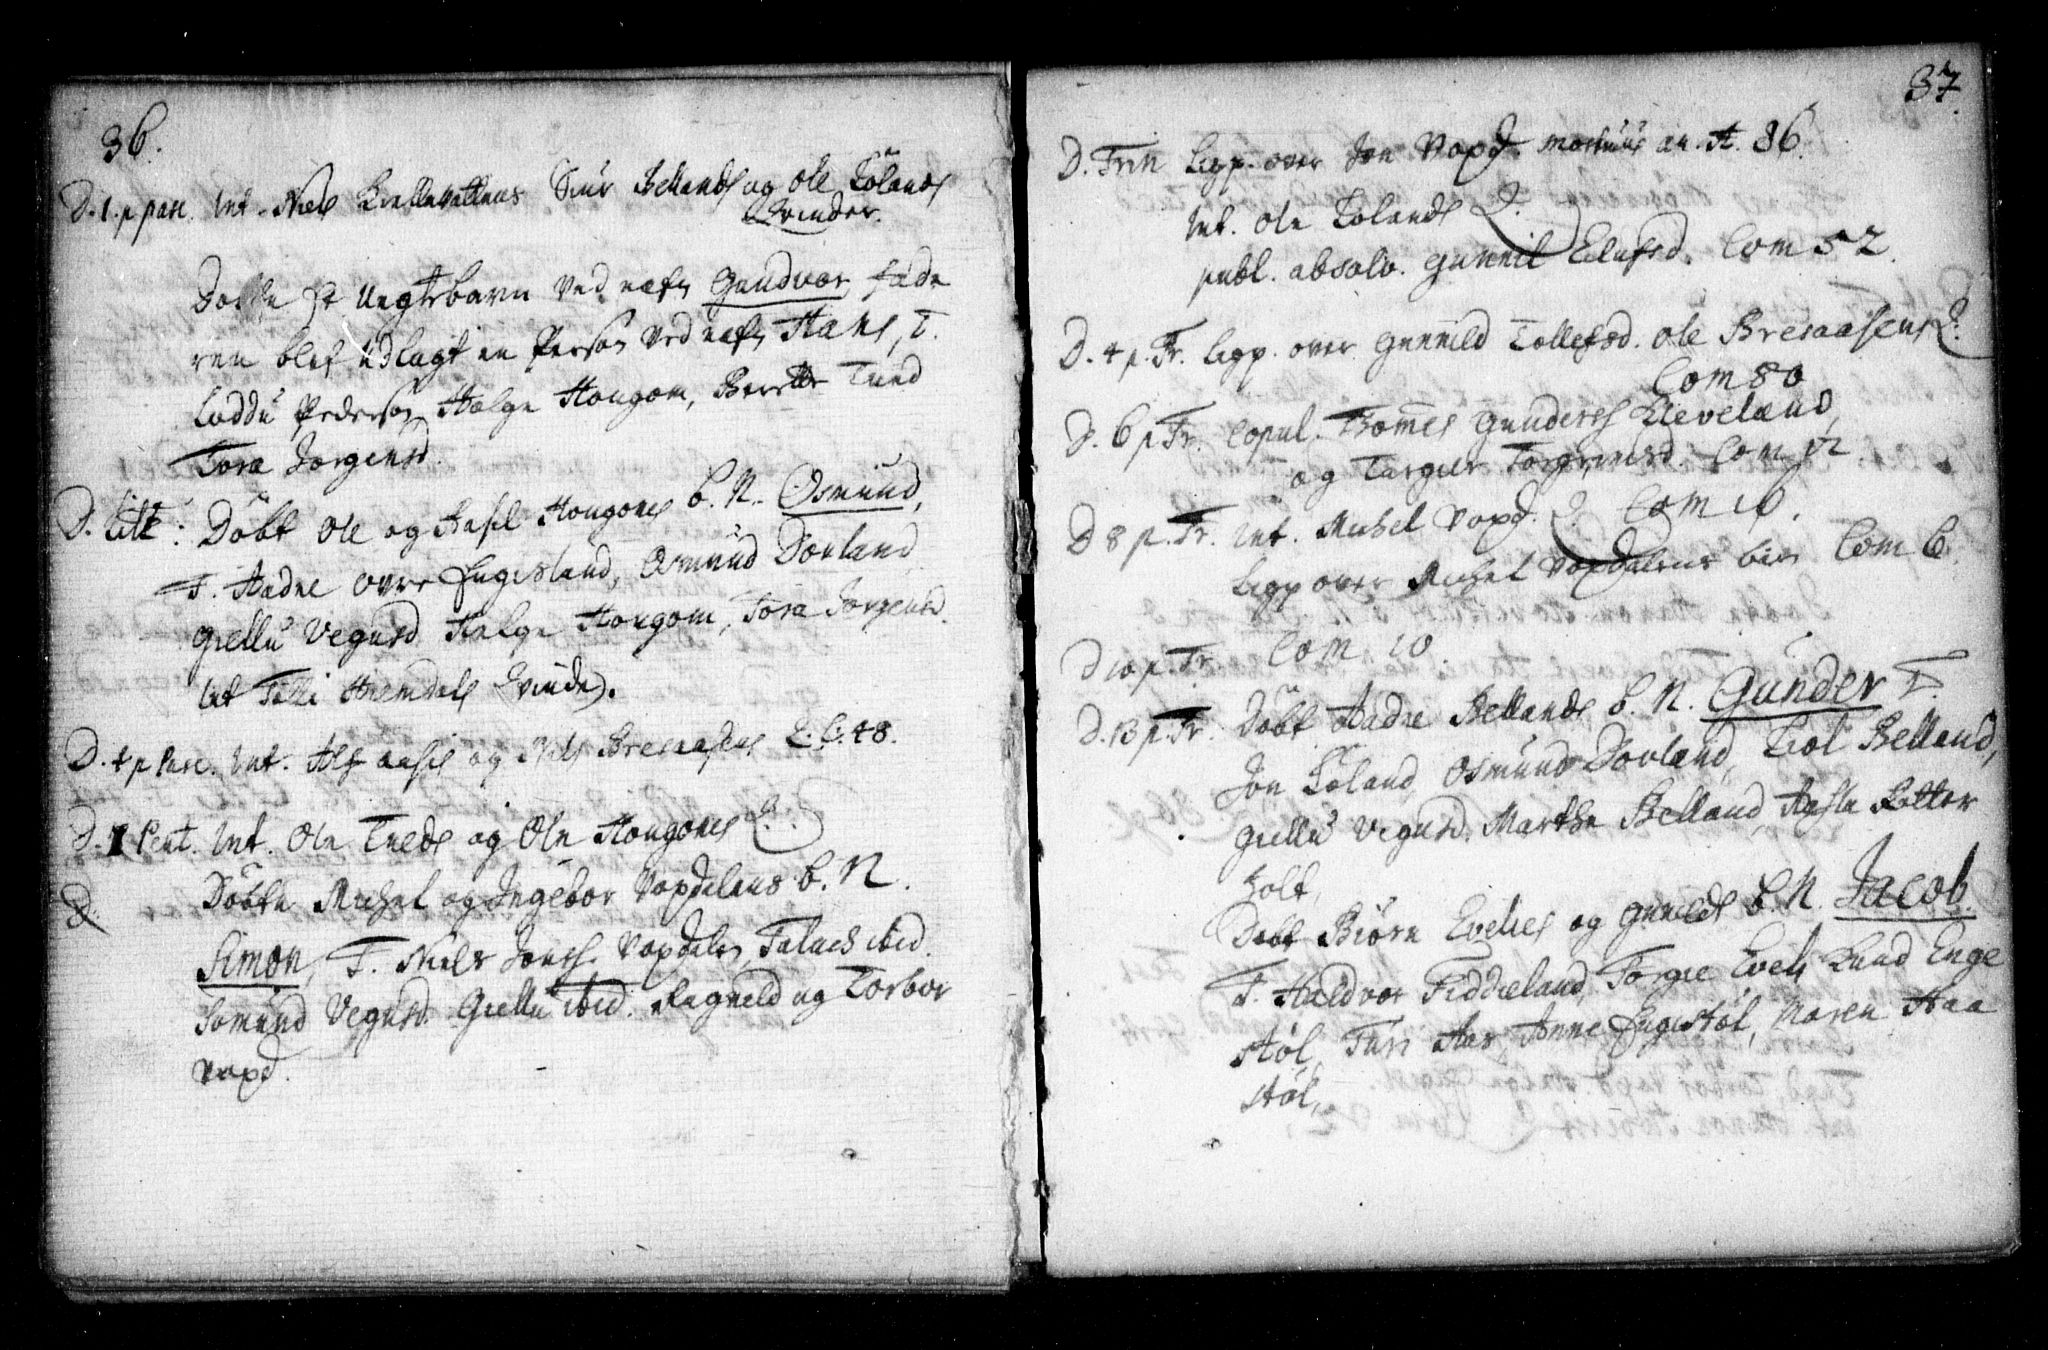 36.
D. 1. p pasc. Int. Niels Kiellevattens Siur Bellands og Ole Tølands
Qvinder.
Døbte et Uegte barn ved nafn Gundvor, fade
ren blef udlagt en Person ved nafn Hans, T.
Loddu Pederson Helge Hougom, Berette Tued
Tora Jørgensd.
D. Litt: Døbt Ole og Assel Hougones b. N. Osmund,
T. Aadne Øvre Engesland, Osmund Dovland
Giellu Vegusd. Helge Hougom, Tora Jørgensd.
Int Telli Hremdals Qvinde.
D. 4 p Pasc. Int. Alf aasis og Nils Bresaasens Q. C. 48.
D. 1 Pent. Int. Ole Tueds og Ole Hougones Q.
Døbte Michel og Ingebor Vopdalens b. N.
D.
Simon, T. Niels Jons. Vopdalen, Taluch ibid.
Somund Vegusd. Giellu ibid. Ragnild og Torbor
Vopd.
37.
D. Trin Ligp. over Jon Vopd. mortuus an. Æt. 86.
Int. Ole Tolands Q.
publ. absolv. Gunnil Eilufsd. Com 52.
D. 4 p. Tr. Ligp. over Gunnild Tollefsd. Ole Bresaasens Q.
Com 80
D. 6 p Tr. Copul. Thomes Gunders Kleveland,
og Targier Torgrimsd. Com 12
D 8 p. Tr. Int. Michel Vopd. Q. Com 10.
Ligp over Michel Vopdalens bar Com 6.
D 10 p. Tr. Com 10.
D. 13 p. Tr. Døbt Aadne Bellands b. N. Gunder T.
Jon Toland, Osmund Dovland, Kiøl Belland,
Giellu Vegusd. Marthe Belland, Aasle Retter
holt,
Døbt Biørn Evelies og Gunilds b. N. Jacob.
T. Haldvor Fiddieland, Torgie Eveli, Knud Enge
støl, Turi Aas, Anne Engestøl, Maren Haa
støl,